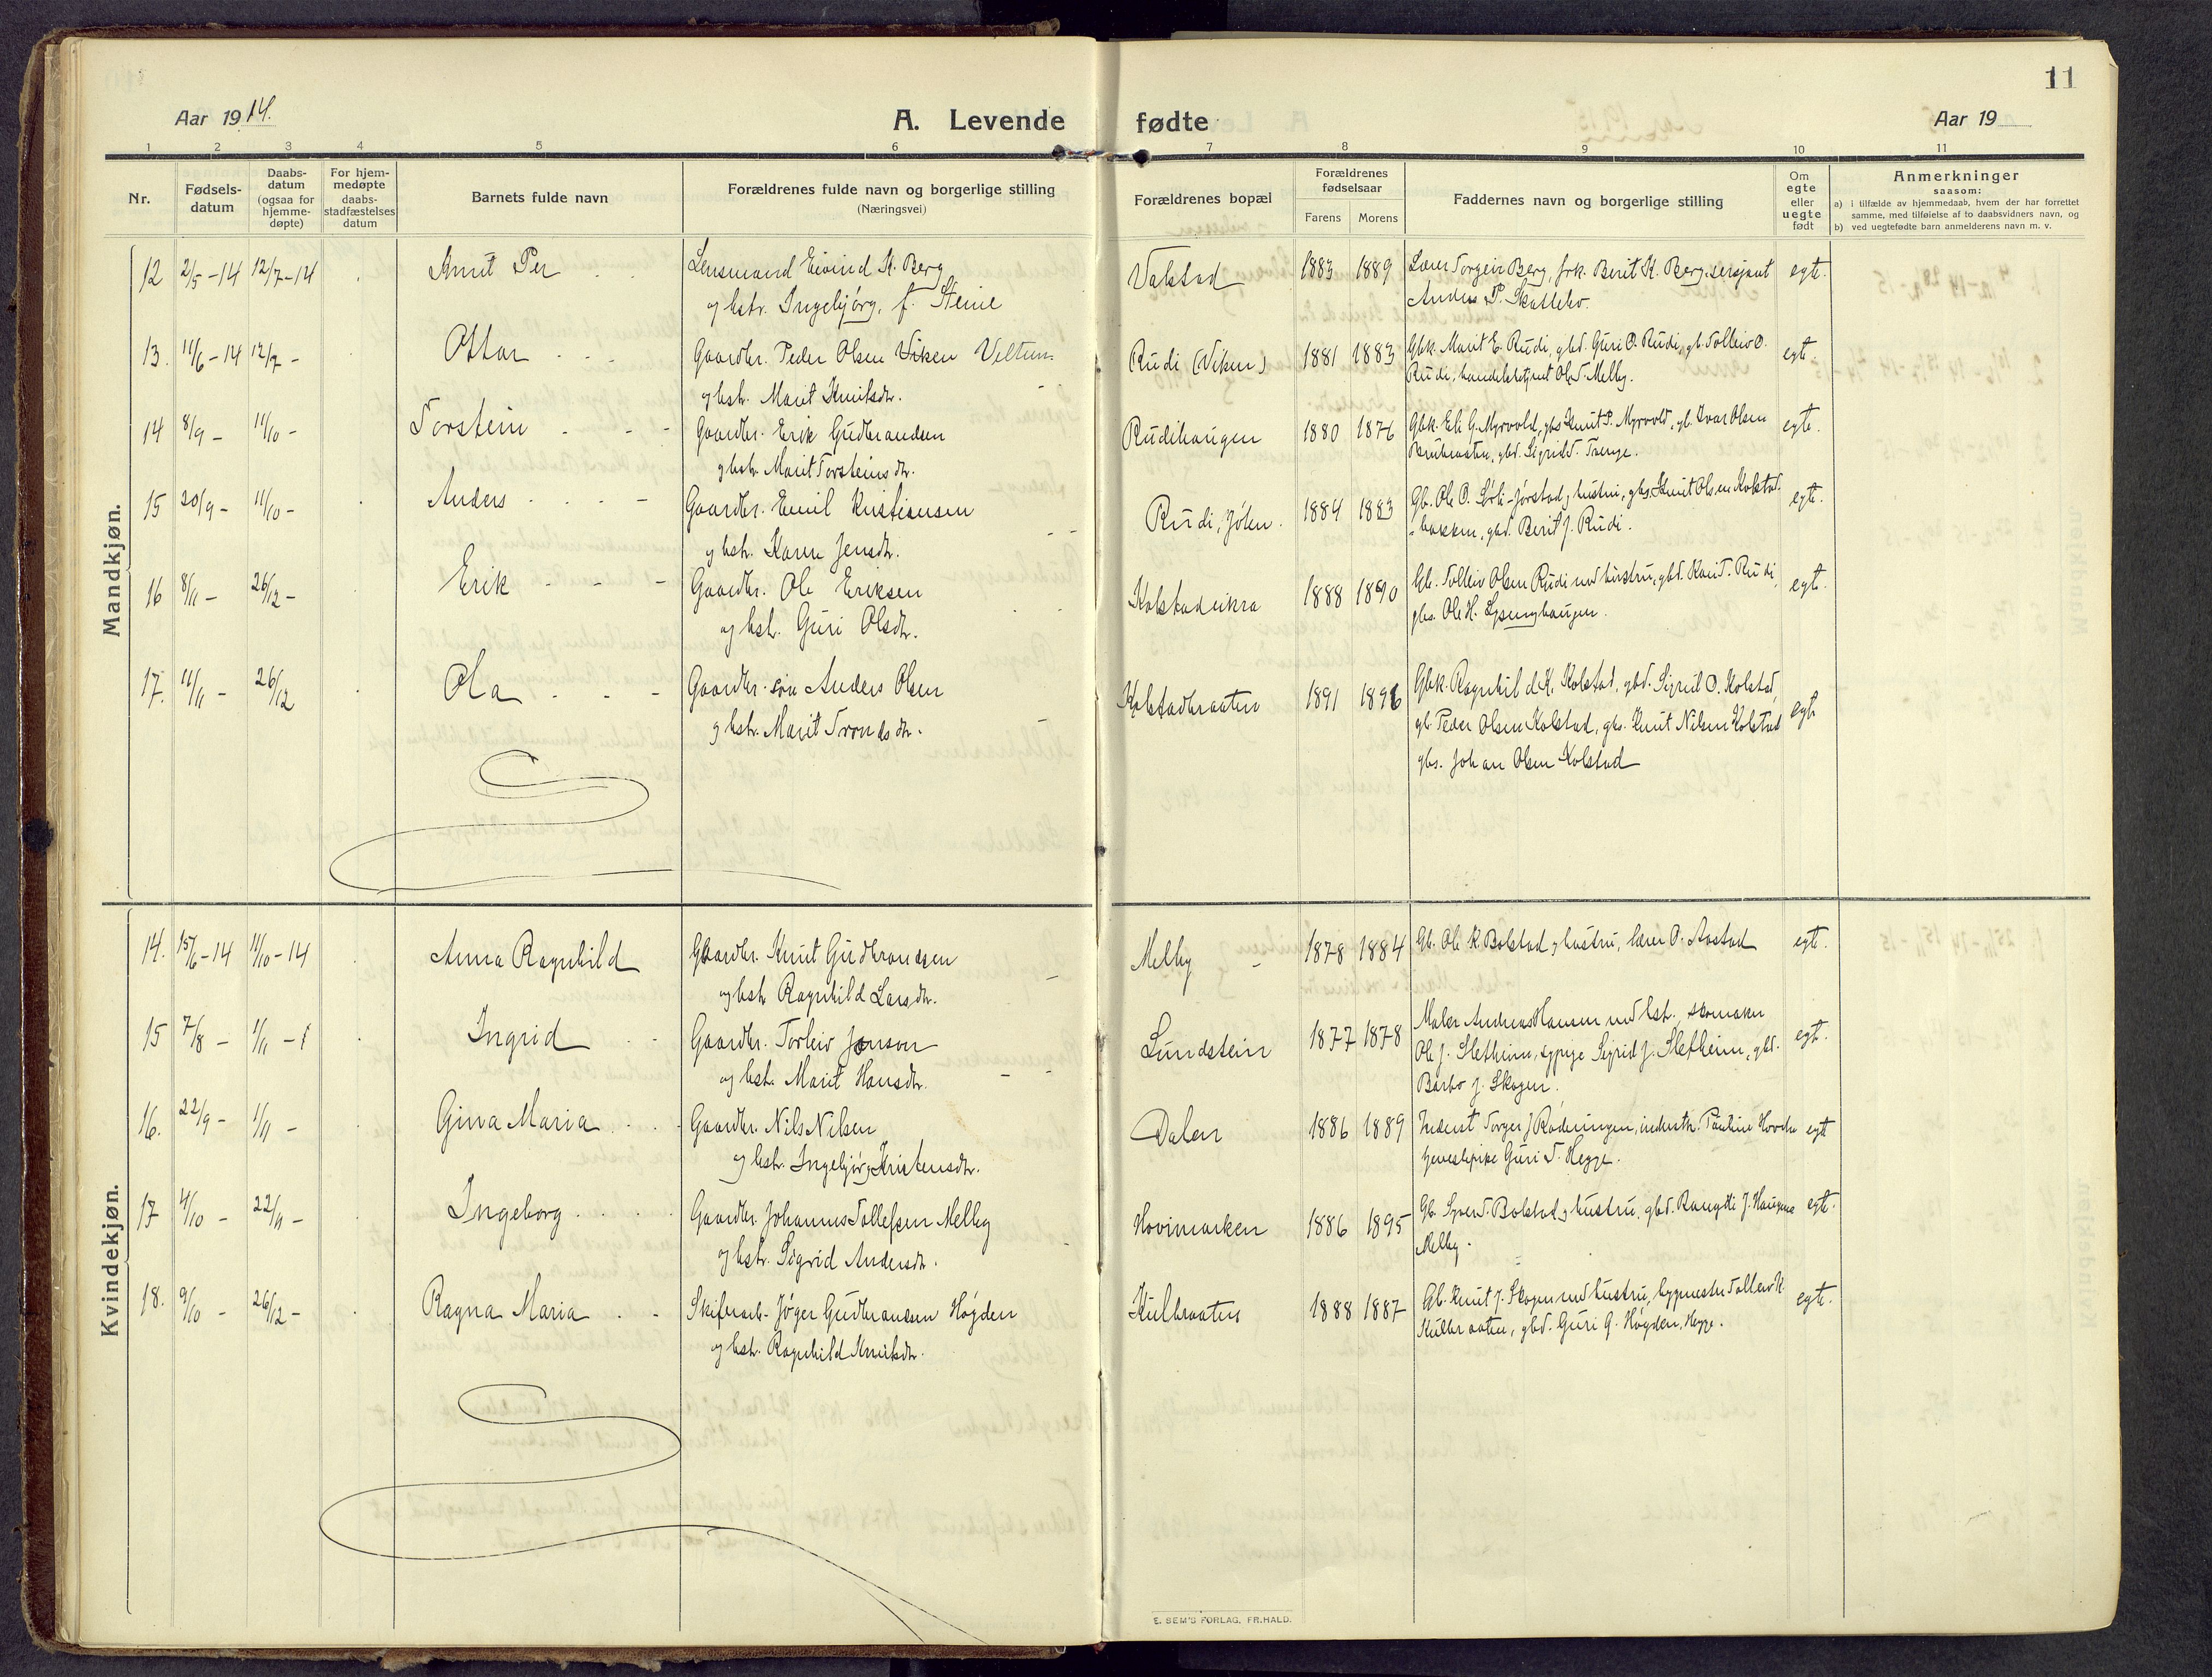 11
Aar 1914.
A. Levende fødte
Aar 19
1 2 3 4 5 6 7 8 9 10 11
Nr.
Fødsels-
datum
Daabs-
datum
(ogsaa for
hjemme-
døpte)
For hjem-
medøpte
daabs-
stadfæstelses
datum
Barnets fulde navn
Forældrenes fulde navn og borgerlige stilling
(Næringsvei)
Forældrenes bopæl
Forældrenes
fødselsaar
Farens Morens
Faddernes navn og borgerlige stilling
Om
egte
eller
uegte
født
Anmerkninger
saasom:
a) i tilfælde av hjemmedaab, hvem der har forrettet
samme, med tilføielse af to daabsvidners navn, og
b) ved uegtefødte barn anmelderens navn m. v.
Mandkjøn.
12 2/5-14 12/7-14 Knut Per Lensmand Eivind K. Berg Valstad 1883 1889 Lærer Torgeir Berg, frk. Berit K. Berg, sersjant egte.
og hstr. Ingebjørg, f. Steine Anders P. Skattebo.
13. 11/6-14 12/7- Ottar Gaardbr. Peder Olsen Viken Veltun Rudi (Viken) 1881 1883 Gbk. Marit E. Rudi, gbd. Guri O. Rudi, gb. Tolleiv O. egte
og hstr. Marit Knutsdtr. Rudi, handelsbetjent Ole T. Melby.
14 8/9- 11/10- Torstein Gaardbr. Erik Gudbrandsen Rudihaugen 1880 1876 Gbk. Eli G. Myrvold, gbs Knut P. Myrvold, gb. Ivar Olsen egte.
og hstr. Marit Torsteinsdtr. gbd. Sigrid
15 20/9- 11/10- Anders Gaardbr. Emil Kristiansen Rudi, Jølen. 1884 1883 Gb. Ole O. Sørli-Jørstad og hustru, gbs. Knut Olsen Kolstad- egte.
og hstr. Karen Jensdtr. bakken, gbd. Berit J. Rudi.
16 8/11- 26/12- Erik Gaardbr. Ole Eriksen Kolstadeikra 1888 1890 Gb. Tolleiv Olsen Rudi med hustru, gbd. Kari T. Rudi, egte.
og hstr. Guri Olsdtr. gbs. Ole H. Lysenghaugen.
17. 11/11- 26/12 Ola Gaardbr. søn Anders Olsen Kolstadbraaten 1891 1896 Gbk. Ragnhild K. Kolstad, gbd. Sigrid O. Kolstad, egte
og hstr. Marit Trondsdtr. gb. Peder Olsen Kolstad, gbs. Knut Nilsen Kolstad
gbs. Johan Olsen Kolstad
Kvindekjøn.
14. 15/6-14 11/10-14 Anna Ragnhild Gaardbr. Knut Gudbrandsen Melby 1878 1884 Gb. Ole K. Bolstad og hustru, lærer O. Aastad egte.
og hstr Ragnhild Larsdtr.
15 7/8- 1/11- Ingrid Gaardbr. Torleiv Jonson Lundstein 1877 1878 Maler Andreas Hansen med hstr. skomaker egte.
og hstr. Marit Hansdtr. Ole J. Sletheim, sypige Sigrid J. Sletheim, gbd.
Barbo J. Skogen.
16. 22/9- 1/11- Gina Maria Gaardbr. Nils Nilsen Dalen 1886 1889 Inderst Torger J inderstk. Pauline egte
og hstr. Ingebjørg Kristensdtr. tjenestepike Guri T. Hegge.
17 4/10- 22/11- Ingeborg Gaardbr. Johannes Tollefsen Melby Hovimarken 1886 1895 Gb. Syver T. Bolstad og hustru, gbd. Rangdi J. egte.
og hstr. Sigrid Andersdtr. Melby.
18. 9/10- 26/12- Ragna Maria Skiferarb. Jøger Gudbrandsen Høgden Kulbraaten 1888 1887 Gb. Knut J. Skogen med hustru, bygmester Tolleiv K. egte.
og hstr. Ragnhild Knutsdtr. Kulbraaten, gbd. Guri G. Høgden, Hegge.
E. SEM'S FORLAG, FR.HALD.